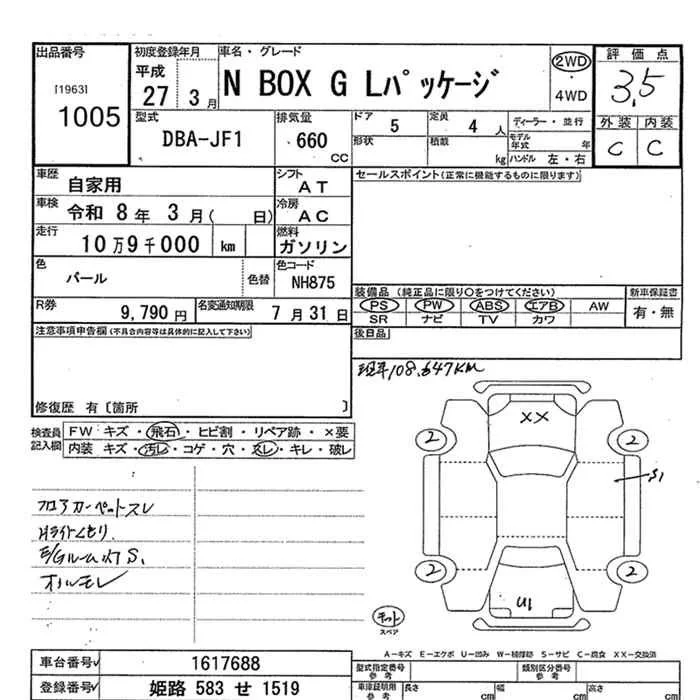 出品番号
[1963]
1005
初度登録年月
平成
27 3月
車名・グレード
N BOX G Lパッケージ
2WD
4WD
評価点
3.5
外装 内装
C C
型式
DBA-JF1
排気量
660
CC
ドア
5
定員
4 人
形状
積載
kg
ディーラー・並行
モデル年式 年
ハンドル 左・右
車歴
自家用
シフト
AT
車検
令和 8年 3月( 日)
冷房
AC
走行
10万9千000 km
燃料
ガソリン
色
パール
色替
色コード
NH875
R券
9,790円
名変通知期限
7月31日
セールスポイント(正常に機能するものに限ります)
装備品 (純正品に限り○をつけてください)
PS PW ABS エアB AW
SR ナビ TV カワ
新車保証書
有・無
後日品
注意事項申告欄(不具合内容等は具体的に記入して下さい)
修復歴 有〔箇所 〕
現車108,647KM
検査員記入欄
FW キズ・飛石・ヒビ割・リペア跡・×要
内装 キズ・汚レ・コゲ・穴・スレ・キレ・破レ
フロアカーペットスレ
Hライトくもり
E/Gルーム内S
オイルモレ
XX
2
2
S1
2
2
U1
キット
スペア
A-キズ E-エクボ U-凹み W-補修跡 S-サビ C-腐食 XX-交換済
車台番号
1617688
登録番号
姫路 583 せ 1519
型式指定番号
参考
類別区分番号
参考
車庫証明用
参考
長さ cm
幅 cm
高さ cm